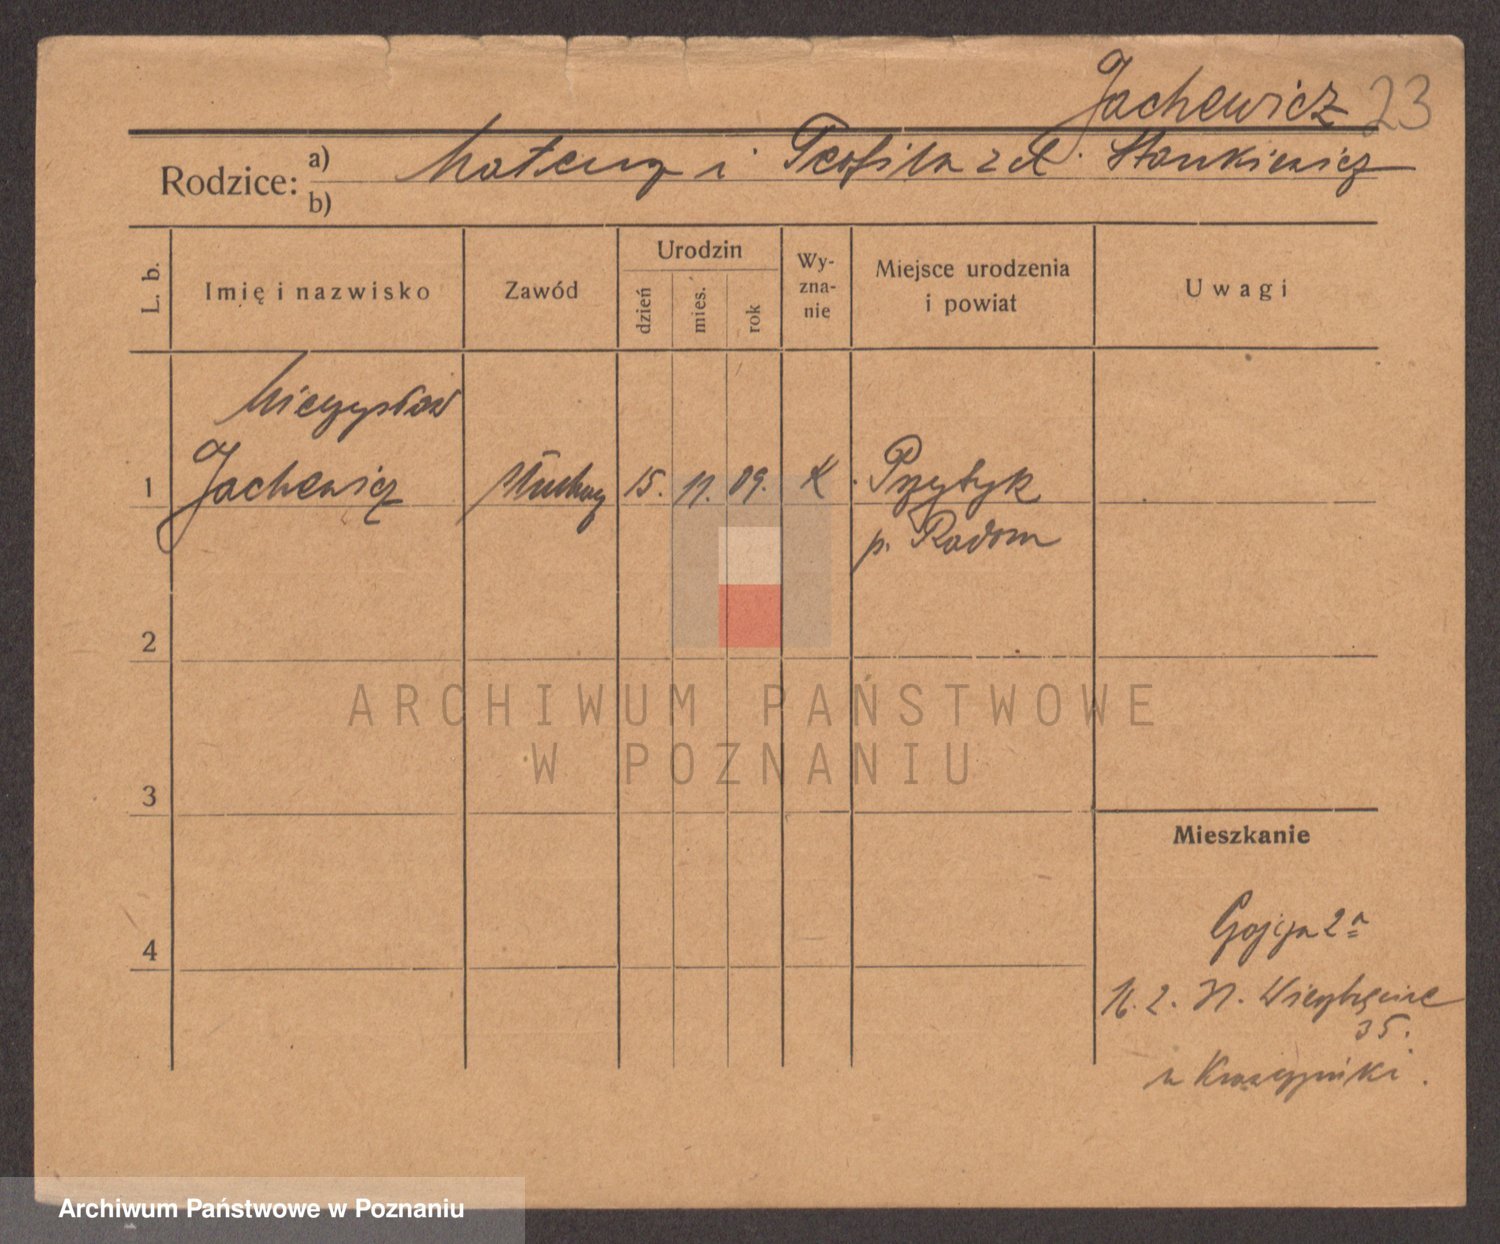 Jachewicz 23
Rodzice: a) Mateusz i Teofila z d. Stankiewicz
b)
L. b.
Imię i nazwisko
Zawód
Urodzin
dzień
mies.
rok
Wy-
zna-
nie
Miejsce urodzenia
i powiat
Uwagi
Mieczysław
1 Jachewicz słuchacz 15. 11. 09. K. Przytyk
p. Radom
2
ARCHIWUM PAŃSTWOWE
W POZNANIU
3
Mieszkanie
4
2a
35.
Archiwum Państwowe w Poznaniu